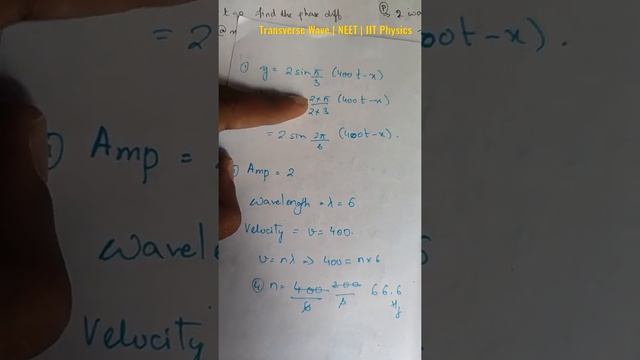 t go find the phase diff
Transverse Wave | NEET | IIT Physics
① y = 2 sin π/3 (400t - x)
2×π/2×3 (400t - x)
= 2 sin 2π/6 (400t - x).
Amp = 2
wavelength = λ = 6
Velocity = v = 400.
v = nλ ⇒ 400 = n × 6
④ n = 400/6 200/3 66.6 Hz